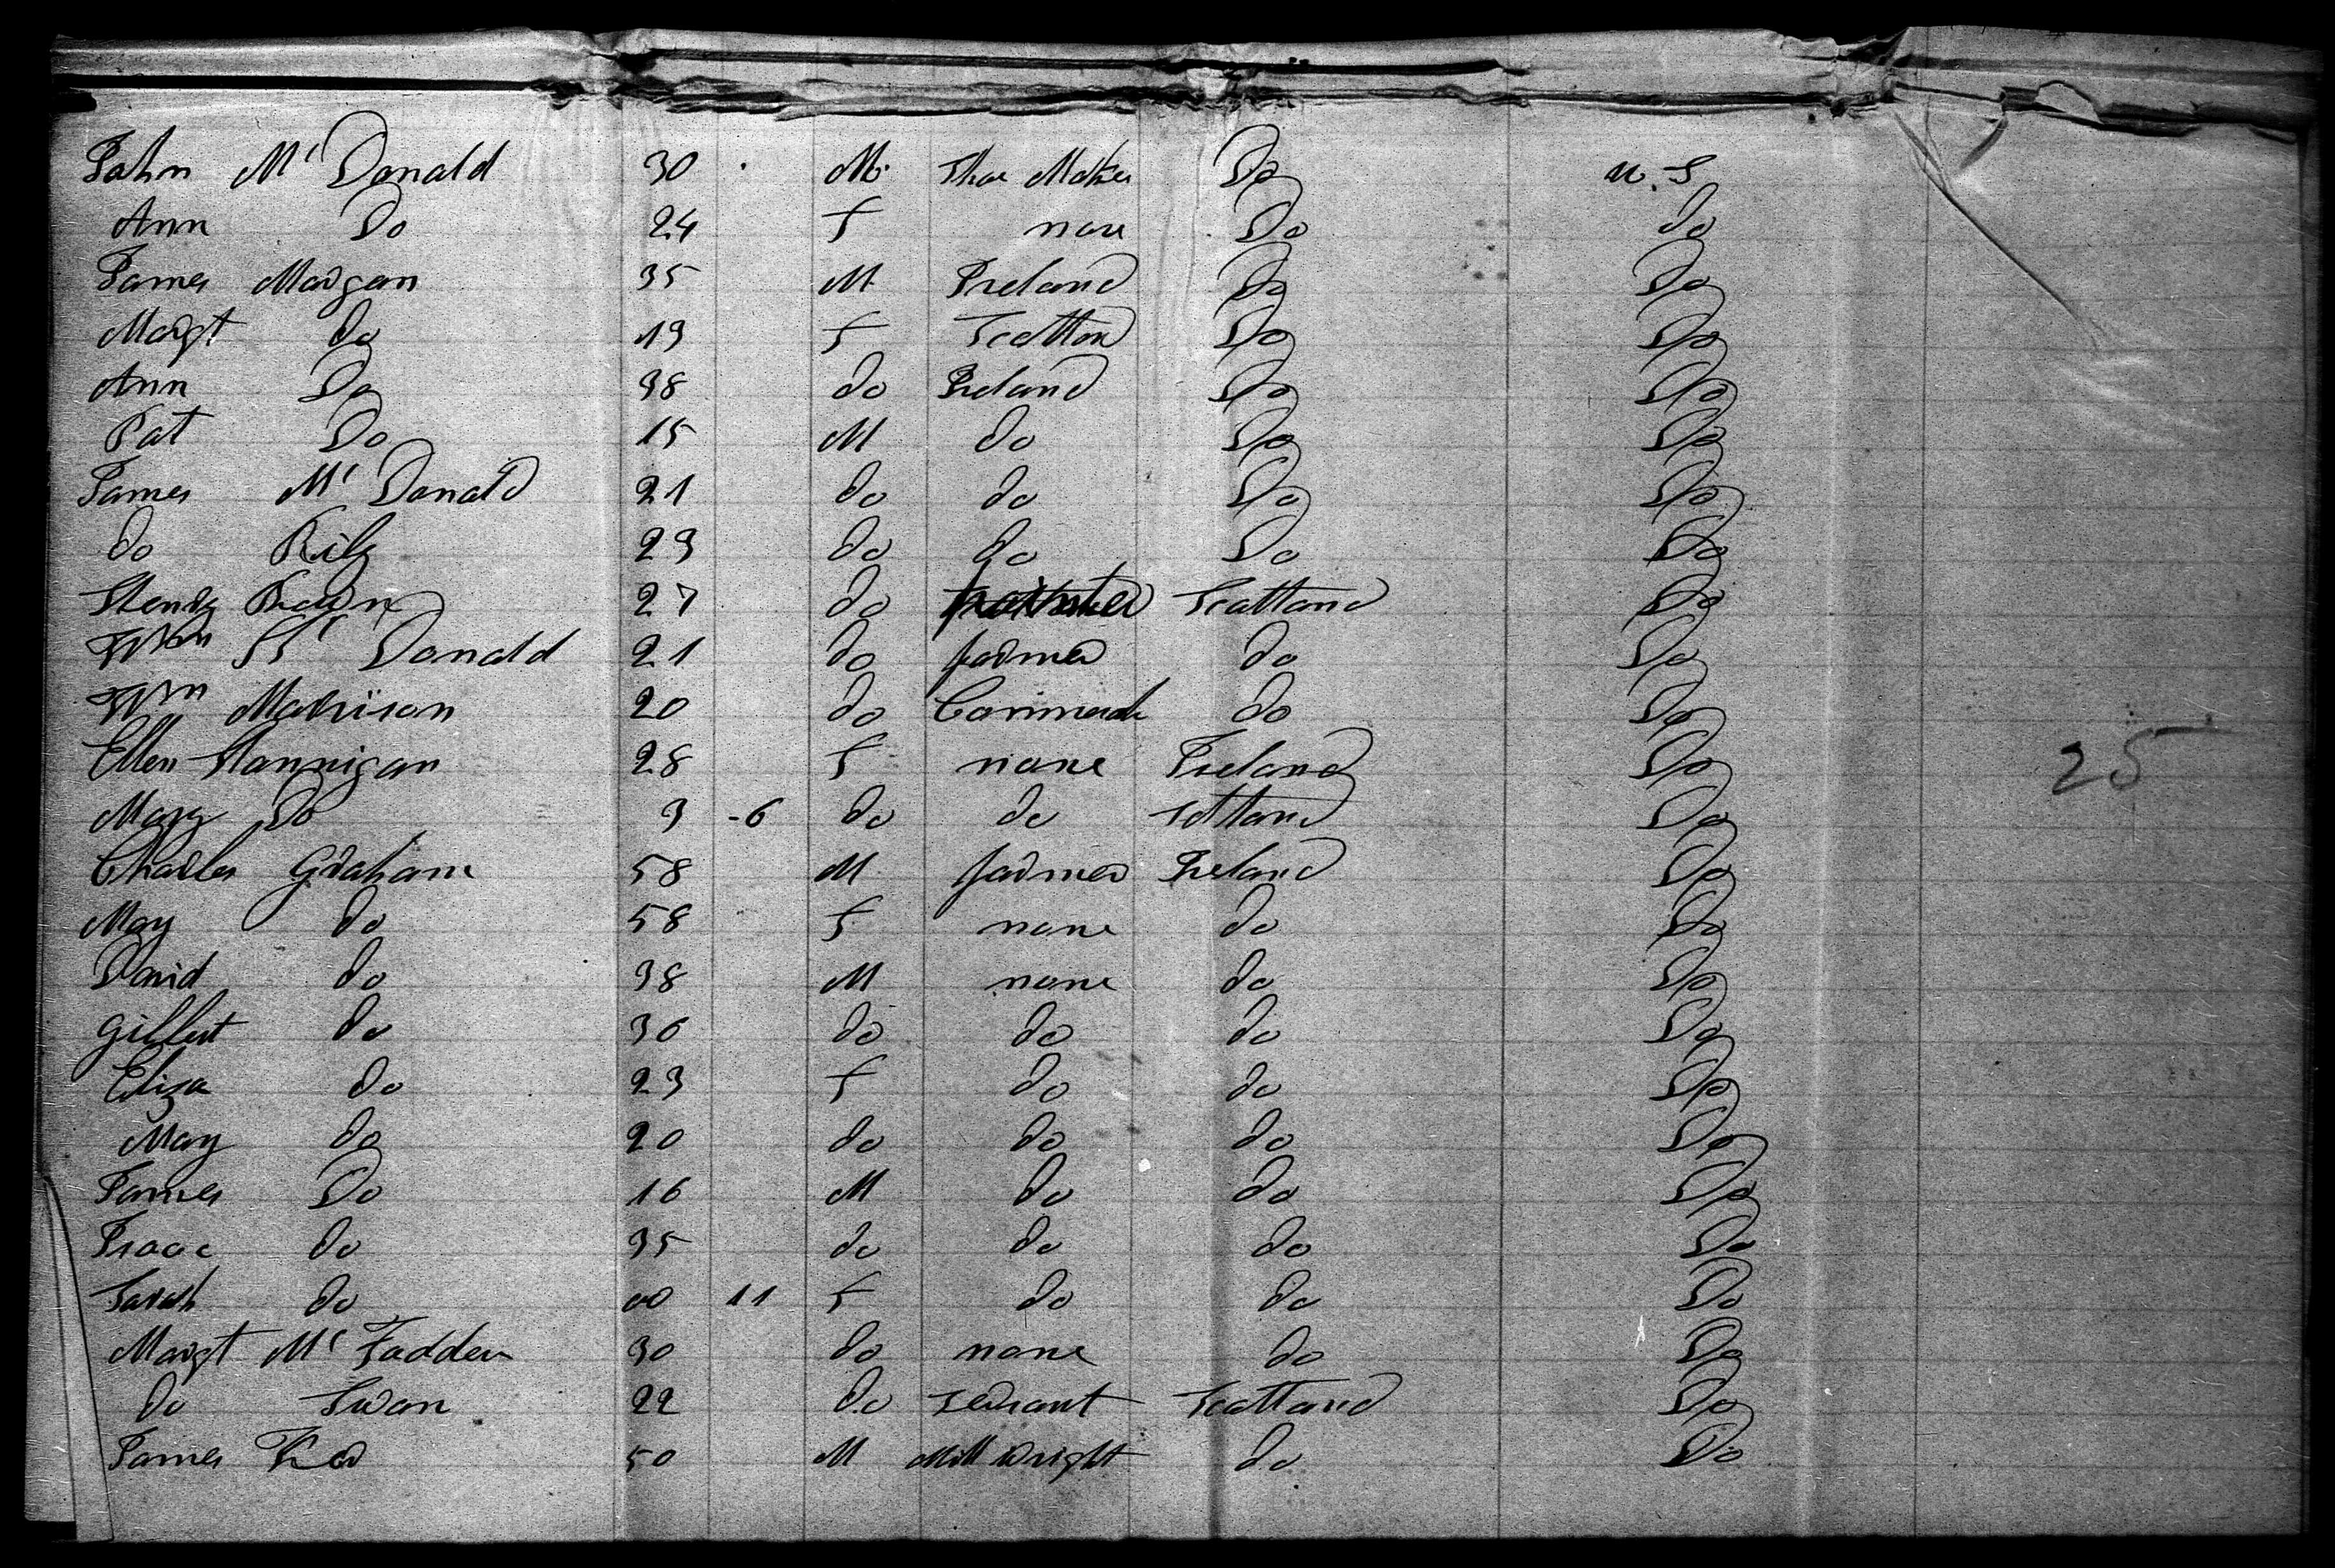 John Mc Donald 30 M. Shoe Maker Do U.S
Ann Do 24 F none Do do
James Morgan 35 M Ireland Do Do
Margt do 19 F Scotland Do Do
Ann Do 38 do Ireland Do Do
Pat Do 15 M do Do Do
James Mc Donald 21 do do Do Do
do Rily 23 do do Do Do
Henry 27 do Scotland Do
Wm Donald 21 do farmer do Do
Wm Morrison 20 do do Do
Ellen Hannigan 28 F none Ireland Do
Mary Do 3 -6 do do Scotland Do
Charles Graham 58 M farmer Ireland Do
Mary do 58 F none do Do
David do 38 M none do Do
Gilbert do 36 do do do Do
Eliza do 23 F do do Do
Mary do 20 do do do Do
James Do 16 M do do Do
Isaac do 35 do do do Do
Sarah do 00 11 F do do Do
Margt Mc Fadden 30 do none do Do
do Swan 22 do servant Scotland Do
James 50 M Mill wright do Do
25